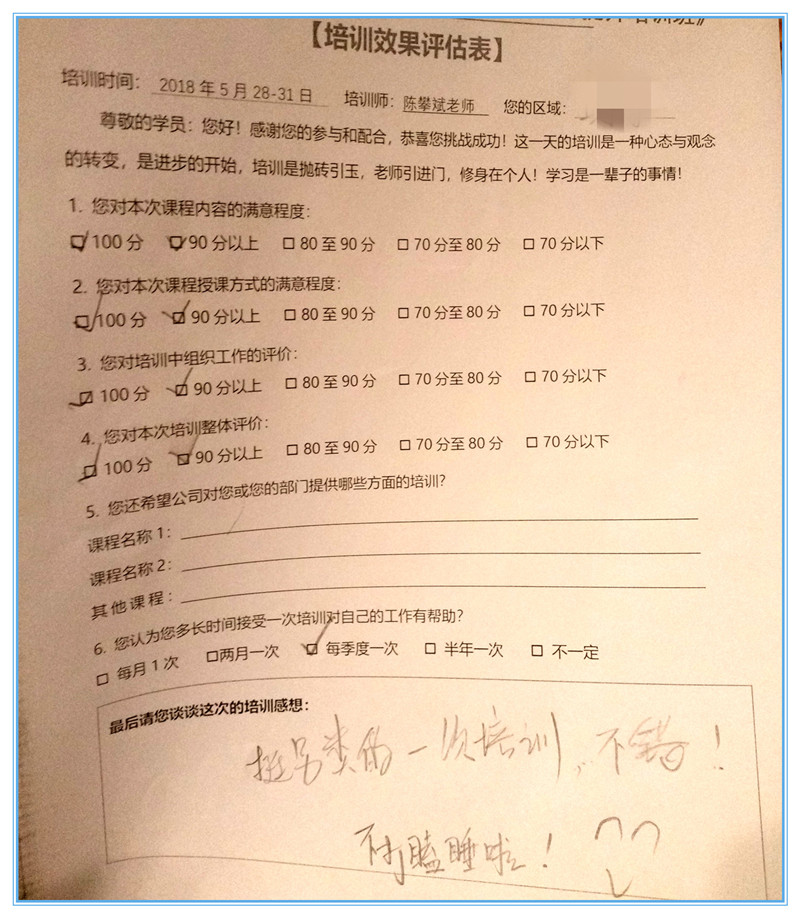 培训班》
【培训效果评估表】
培训时间： 2018 年 5 月 28-31 日 培训师：陈攀斌老师 您的区域：
尊敬的学员：您好！感谢您的参与和配合，恭喜您挑战成功！这一天的培训是一种心态与观念
的转变，是进步的开始，培训是抛砖引玉，老师引进门，修身在个人！学习是一辈子的事情！
1. 您对本次课程内容的满意程度：
☑ 100 分 ☑ 90 分以上 □ 80 至 90 分 □ 70 分至 80 分 □ 70 分以下
2. 您对本次课程授课方式的满意程度：
☑ 100 分 ☑ 90 分以上 □ 80 至 90 分 □ 70 分至 80 分 □ 70 分以下
3. 您对培训中组织工作的评价：
☑ 100 分 ☑ 90 分以上 □ 80 至 90 分 □ 70 分至 80 分 □ 70 分以下
4. 您对本次培训整体评价：
☑ 100 分 ☑ 90 分以上 □ 80 至 90 分 □ 70 分至 80 分 □ 70 分以下
5. 您还希望公司对您或您的部门提供哪些方面的培训？
课程名称 1：
课程名称 2：
其他课程：
6. 您认为您多长时间接受一次培训对自己的工作有帮助？
□ 每月 1 次 □两月一次 ☑ 每季度一次 □ 半年一次 □ 不一定
最后请您谈谈这次的培训感想：
挺另类的一次培训，不错！
不打瞌睡啦！